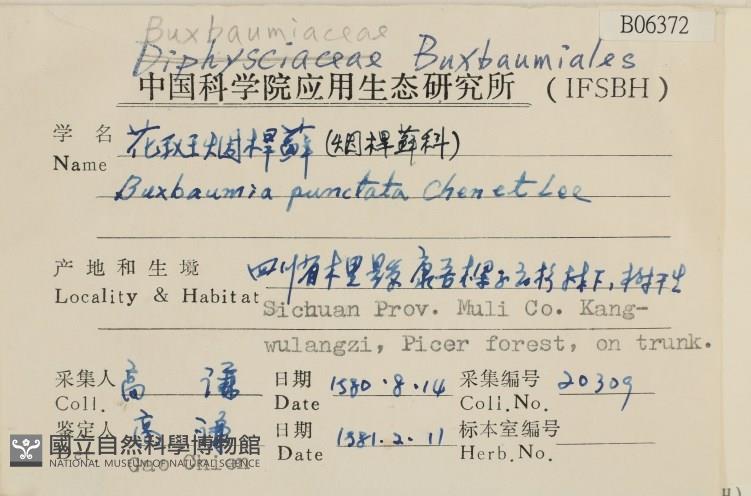 B06372
Buxbaumiaceae
Diphysciaceae Buxbaumiales
中国科学院应用生态研究所 (IFSBH)
学名 花斑烟杆藓 (烟杆藓科)
Name
Buxbaumia punctata Chen et Lee
产地和生境 四川省木里县 康吾梁子云杉林下,树干生
Locality & Habitat
Sichuan Prov. Muli Co. Kang-
wulangzi, Picer forest, on trunk.
采集人 高 谦 日期 1980.8.14 采集编号 20309
Coll. Date Coll.No.
鉴定人 高 谦 日期 1981.2.11 标本室编号
Det. Gao Chien Date Herb.No.
國立自然科學博物館
NATIONAL MUSEUM OF NATURAL SCIENCE